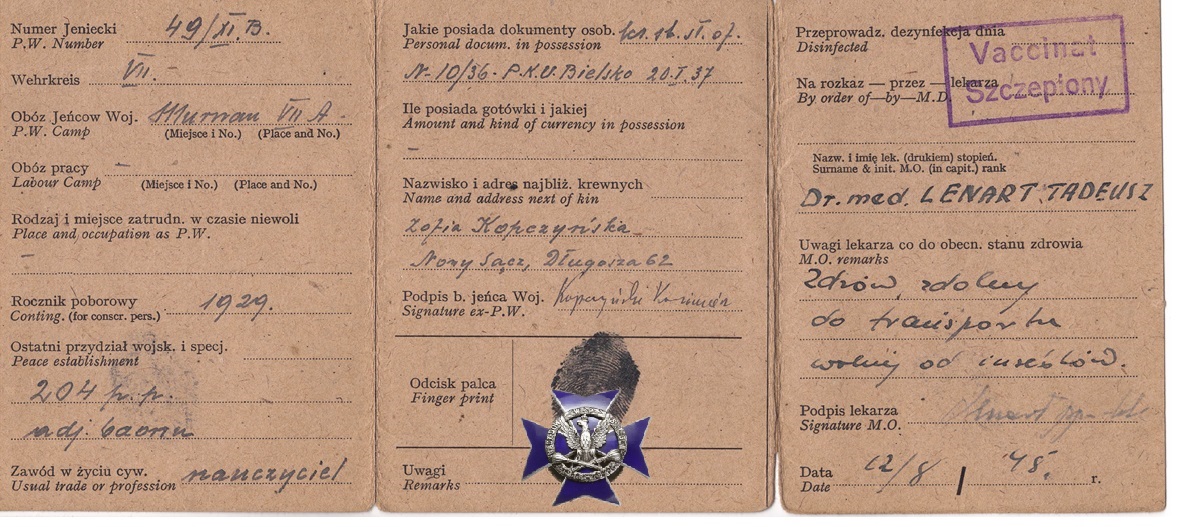 Numer Jeniecki 49/XI.B.
P.W. Number
Wehrkreis VII.-
Obóz Jeńcow Woj. Murnau VII A-
P.W. Camp (Miejsce i No.) (Place and No.)
Obóz pracy -
Labour Camp (Miejsce i No.) (Place and No.)
Rodzaj i miejsce zatrudn. w czasie niewoli
Place and occupation as P.W.
-
Rocznik poborowy 1929.
Conting. (for conscr. pers.)
Ostatni przydział wojsk. i specj.
Peace establishment
204 p.p.
adj. baonu
Zawód w życiu cyw. nauczyciel
Usual trade or profession
Jakie posiada dokumenty osob. ks. st. of.
Personal docum. in possession
N-10/36- P.K.U. Bielsko 20.I.37
Ile posiada gotówki i jakiej
Amount and kind of currency in possession
-
Nazwisko i adres najbliż. krewnych
Name and address next of kin
Zofia Kopczyńska
Nowy Sącz, Długosza 62
Podpis b. jeńca Woj. Kopczyński Kazimierz
Signature ex-P.W.
Odcisk palca
Finger print
Uwagi
Remarks
Przeprowadz. dezynfekcja dnia
Disinfected
Vaccinat
Szczepiony
Na rozkaz — przez — lekarza
By order of—by—M.D.
Nazw. i imię lek. (drukiem) stopień.
Surname & init. M.O. (in capit.) rank
Dr. med. LENART TADEUSZ
Uwagi lekarza co do obecn. stanu zdrowia
M.O. remarks
Zdrów, zdolny
do transportu
wolny od insektów.
Podpis lekarza Lenart
Signature M.O.
Data 12/8 / 45. r.
Date